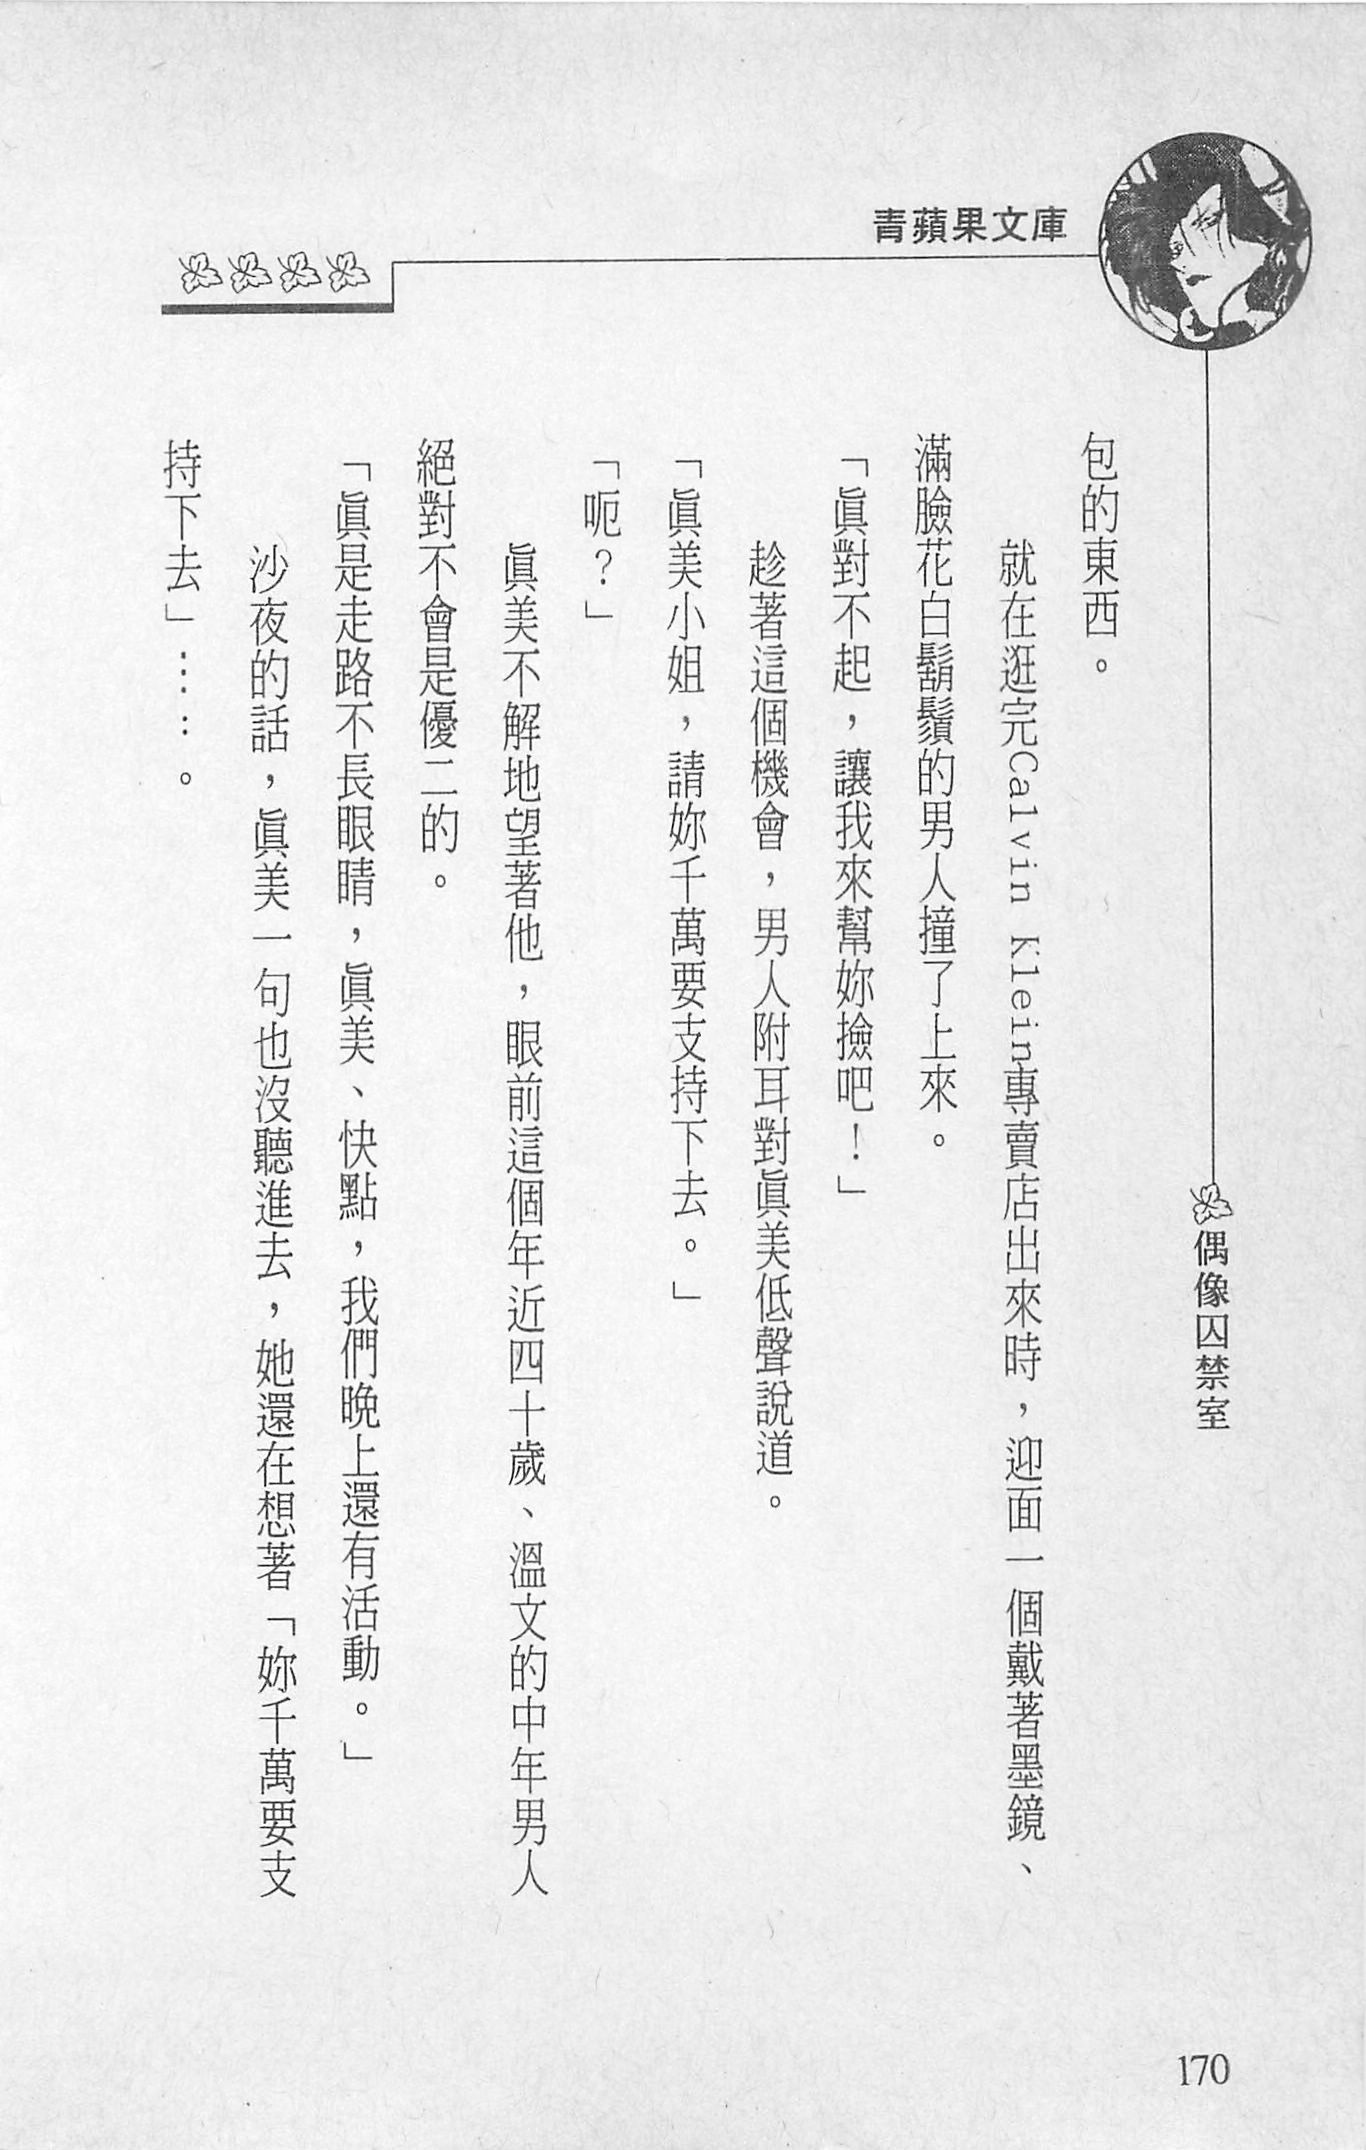 青蘋果文庫
偶像囚禁室
包的東西。
就在逛完Calvin Klein專賣店出來時，迎面一個戴著墨鏡、
滿臉花白鬍鬚的男人撞了上來。
「眞對不起，讓我來幫妳撿吧！」
趁著這個機會，男人附耳對眞美低聲說道。
「眞美小姐，請妳千萬要支持下去。」
「呃？」
眞美不解地望著他，眼前這個年近四十歲、溫文的中年男人
絕對不會是優二的。
「眞是走路不長眼睛，眞美、快點，我們晚上還有活動。」
沙夜的話，眞美一句也沒聽進去，她還在想著「妳千萬要支
持下去」……。
170